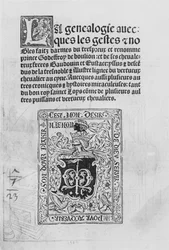 La genealogie auec-
ques les gestes & no-
bles faitz darmes du trespreux et renomme
prince Godeffroy de boulion: et de ses cheuale-
reux freres Baudouin et Eustace: yssus & descē-
dus de la tresnoble & illustre lignee du vertueux
cheualier au cyne. Auecques aussi plusieurs au-
tres cronicques & hystoires miraculeuses: tant
du bon roy sainct Loys cōme de plusieurs aul-
tres puissans et vertueux cheualiers.
CEST MON DESIR
DIEV SERVIR
POVR ACQVERIR